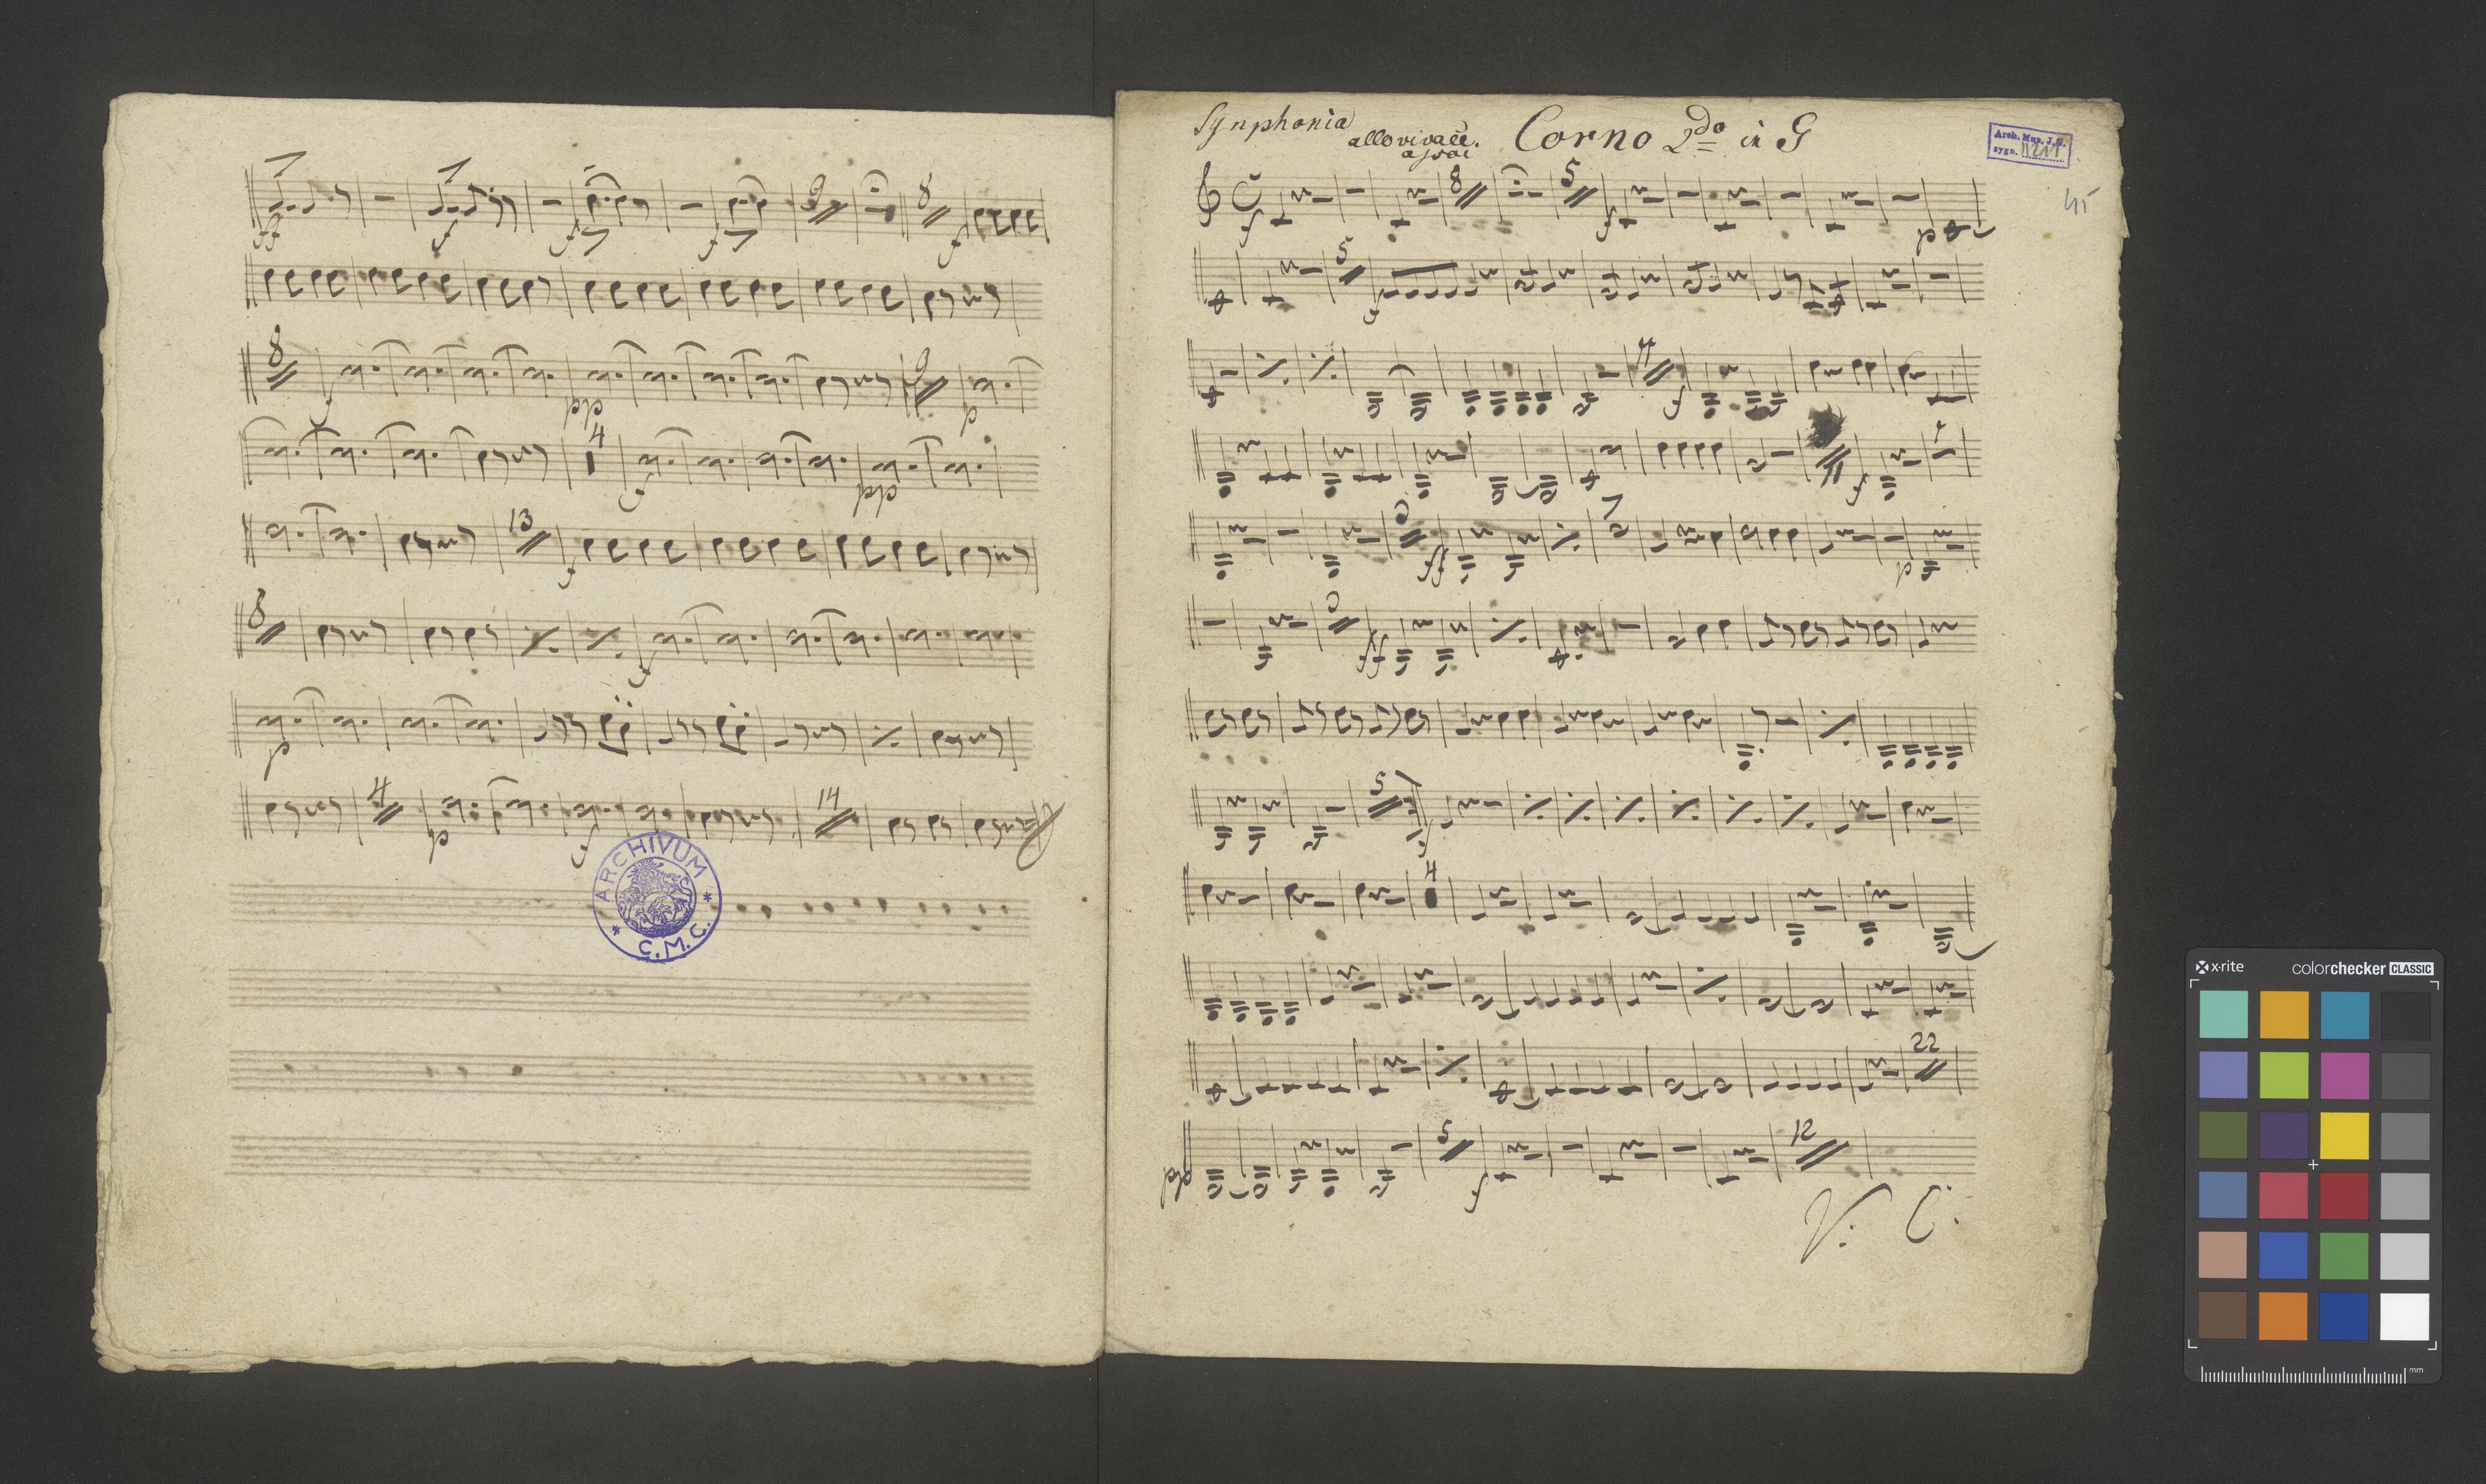 ff f f f 9 8 f
8 f pp 9 p
4 f pp
13 f
8 f
p
4 p f 14
ARCHIVUM
C.M.C.
Synphonia
allo vivace
assai
Corno 2do in G
Arch. Muz. J. G.
sygn.
f 8 5 f p
5 f
f
f
ff p
ff
5 f
4
22
pp 5 f 12
V: C:
x-rite
colorchecker CLASSIC
mm